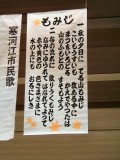 もみじ
一、秋の夕日に てる山もみじ
こいもうすいも 数ある中に
まつをいろどる かえでやつたは
山のふもとの すそもよう
二、谷の流れに 散りうくもみじ
波にゆられて はなれてよって
赤や黄色の 色さまざまに
水の上にも おるにしき
寒河江市民歌